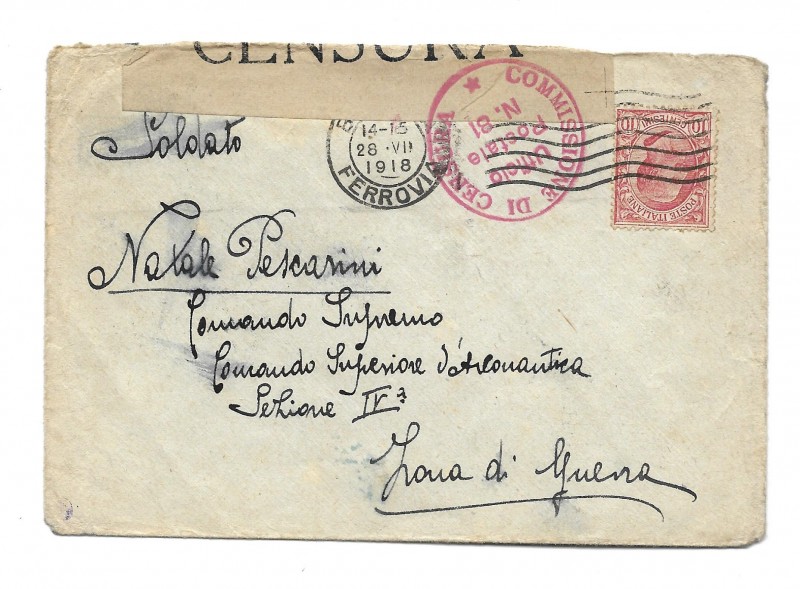 CENSURA
14-15
28 · VII
1918
FERROVIA
COMMISSIONE DI CENSURA ★
Ufficio
Postale
N. 81
10 CENTESIMI 10
POSTE ITALIANE
Soldato
Natale Pescarini
Comando Supremo
Comando Superiore d'Areonautica
Sezione IVª
Zona di Guerra